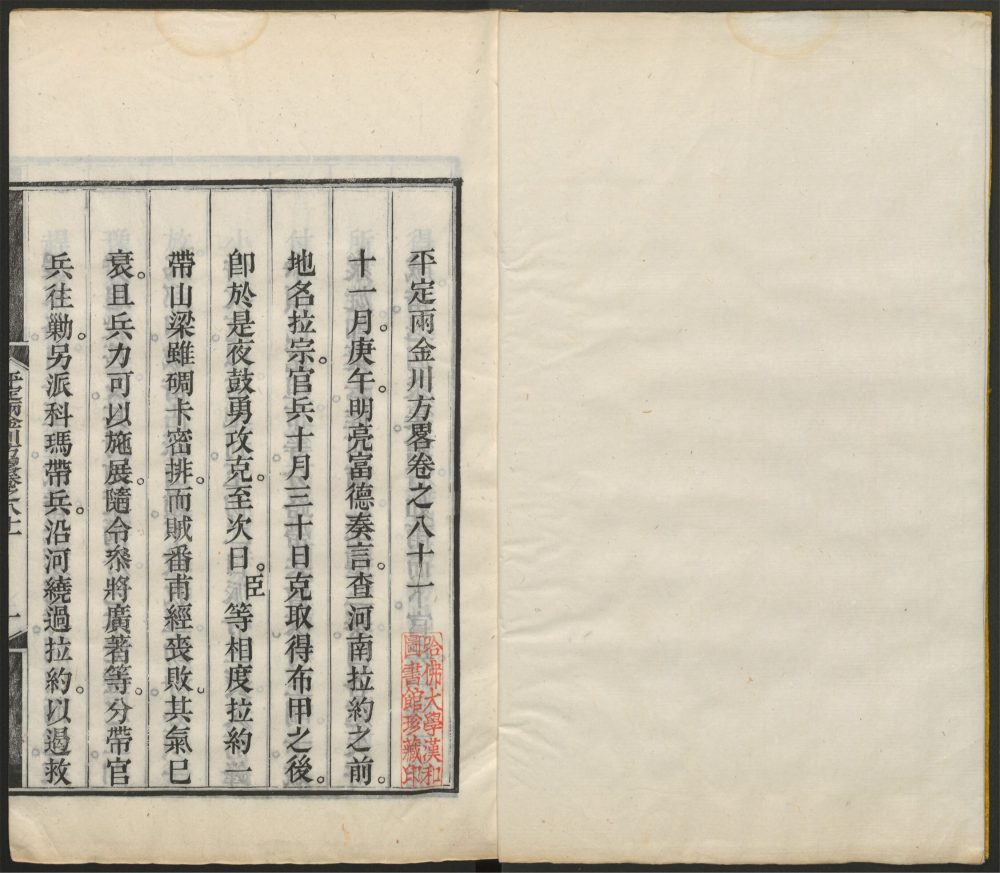 平定兩金川方畧卷之八十一
十一月。庚午。明亮富德奏言。查河南拉約之前。
地名拉宗。官兵十月三十日克取得布甲之後。
卽於是夜鼓勇攻克。至次日。臣等相度拉約一
帶山梁雖碉卡密排。而賊番甫經喪敗。其氣已
衰。且兵力可以施展。隨令叅將廣著等。分帶官
兵往勦。另派科瑪帶兵。沿河繞過拉約。以遏救
平定兩金川方畧卷之八十一
一
哈佛大學漢和
圖書館珍藏印